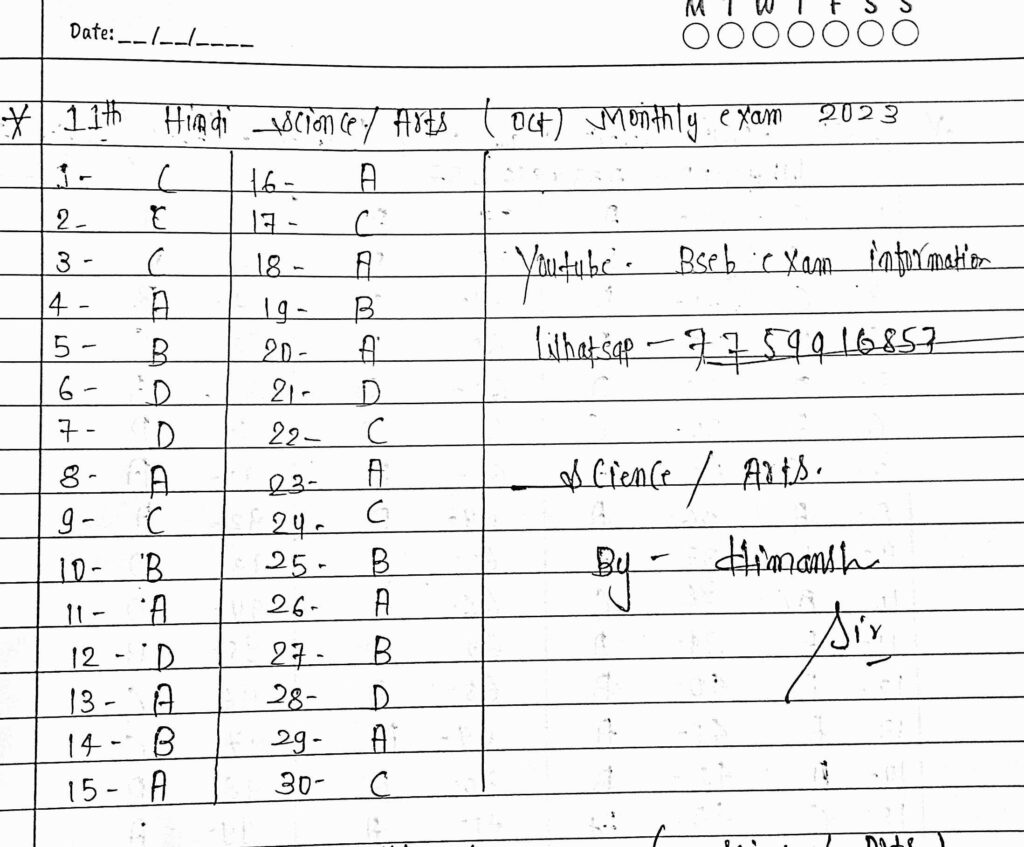 Date: __/__/____
M T W T F S S
11th Hindi Science/ Arts (Oct) Monthly exam 2023
1- C
2- E
3- C
4- A
5- B
6- D
7- D
8- A
9- C
10- B
11- A
12- D
13- A
14- B
15- A
16- A
17- C
18- A
19- B
20- A
21- D
22- C
23- A
24- C
25- B
26- A
27- B
28- D
29- A
30- C
Youtube- Bseb exam information
Whatsap - 7759916857
Science / Arts.
By - Himansh
Sir